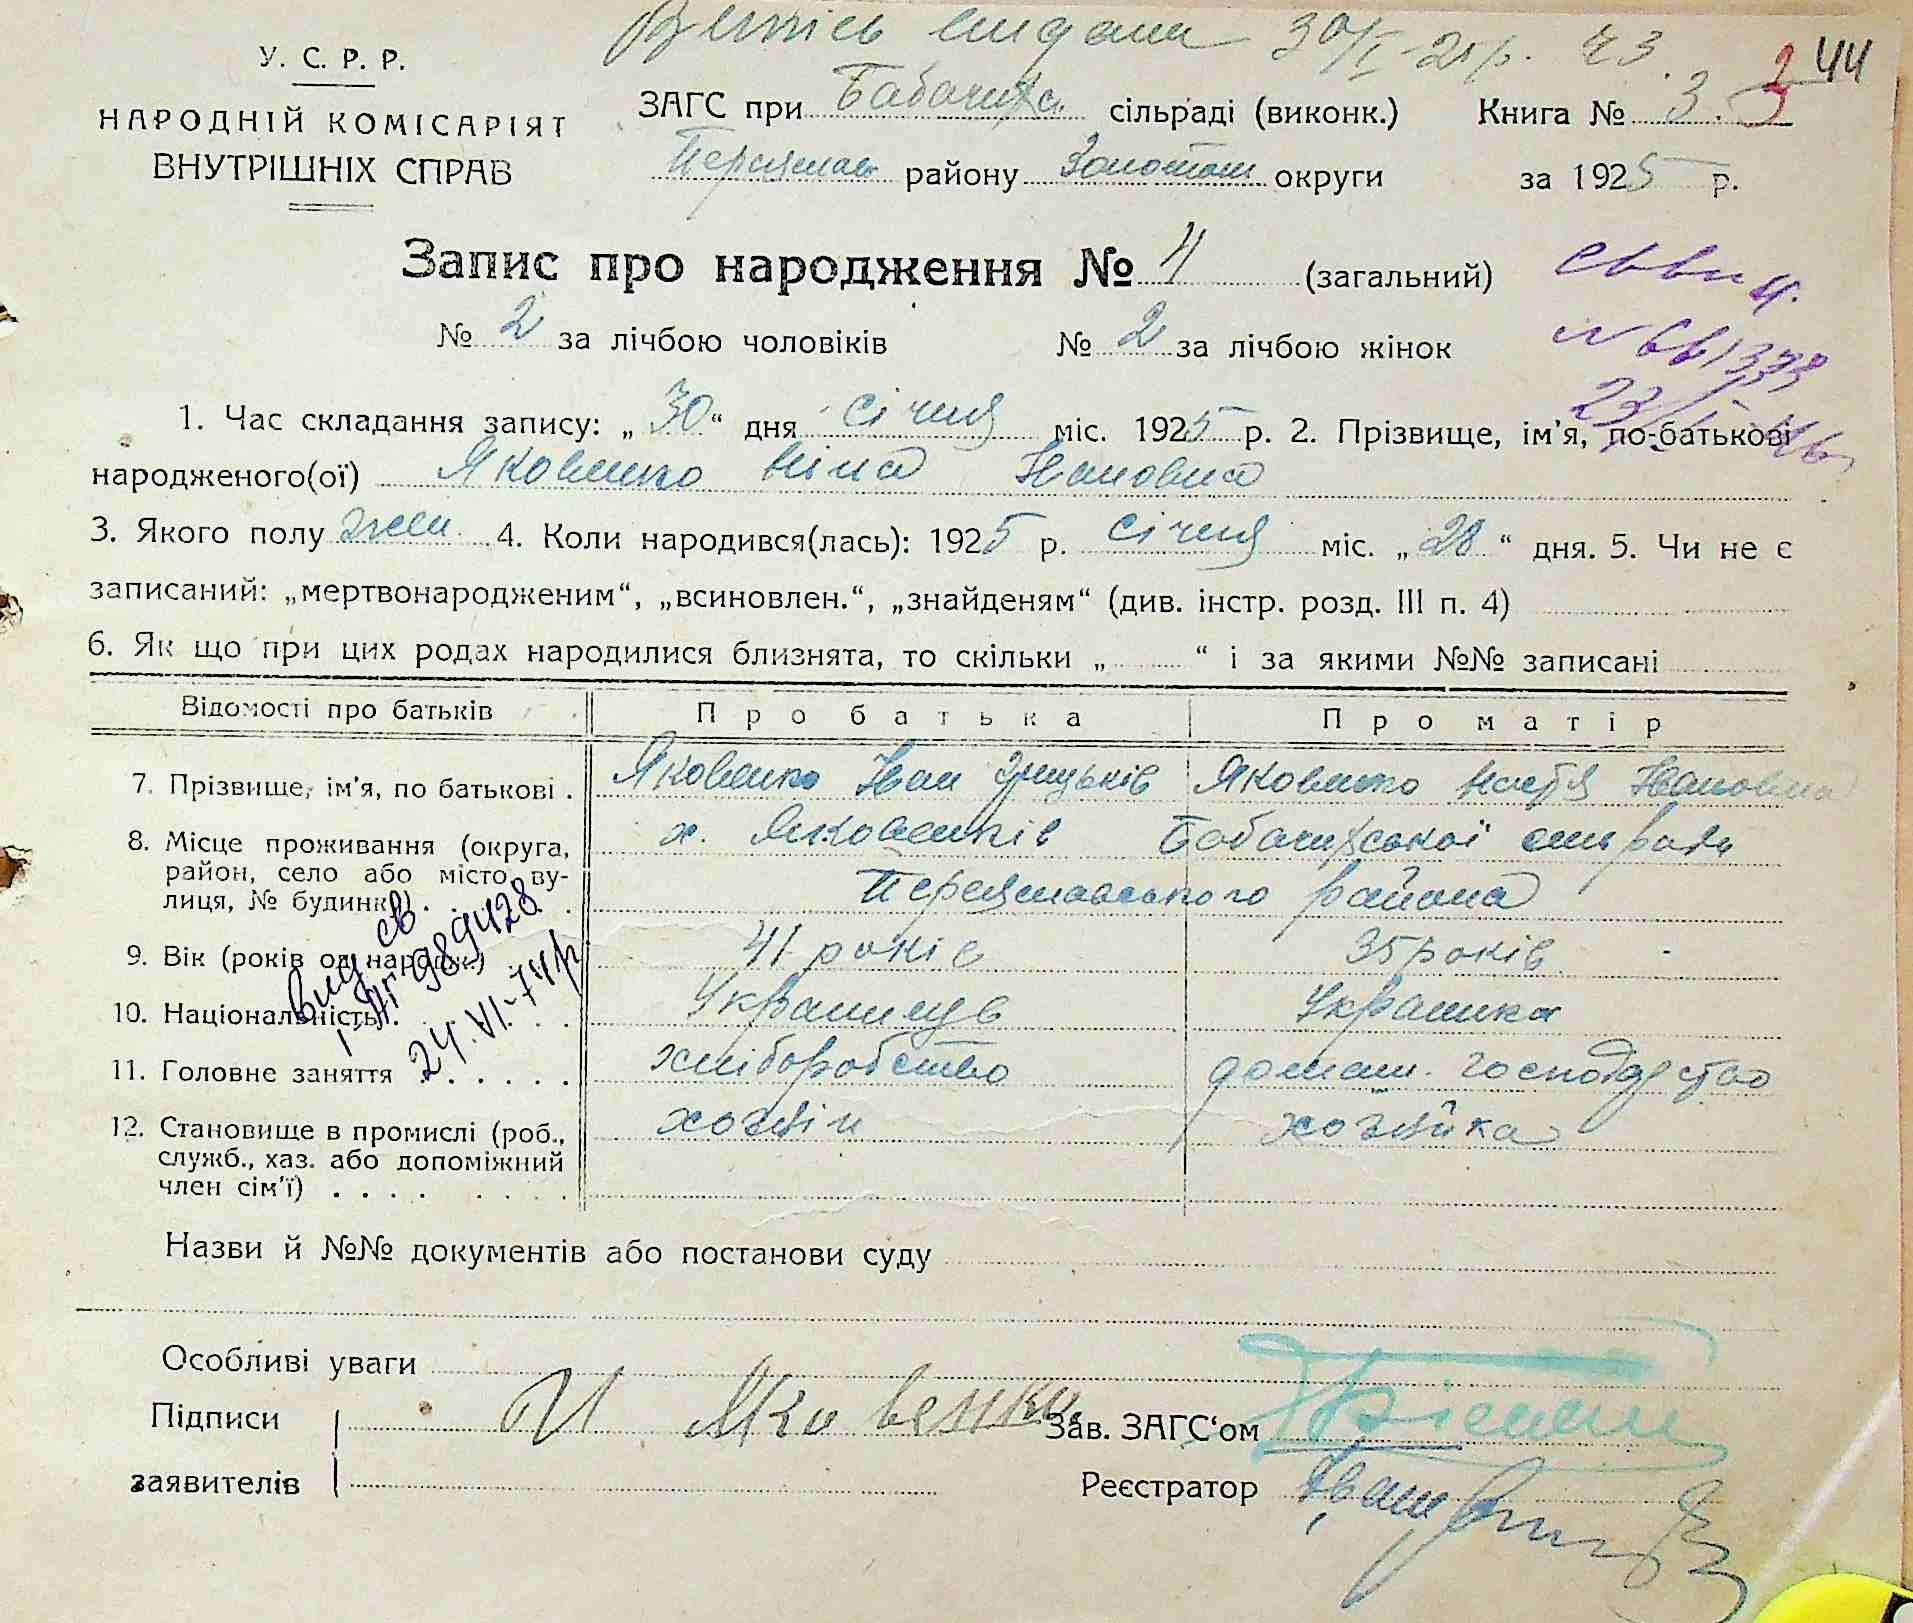 Випись видана 30/I-25р. ч 3.
44
У. С. Р. Р.
НАРОДНІЙ КОМІСАРІЯТ
ВНУТРІШНІХ СПРАВ
ЗАГС при сільраді (виконк.) Книга № 3.
Переяслав району Золотош округи за 1925 р.
Запис про народження № 4 (загальний)
№ 2 за лічбою чоловіків № 2 за лічбою жінок
№ 661373
1. Час складання запису: „30“ дня січня міс. 1925 р. 2. Прізвище, ім'я, по-батькові
народженого(ої) Яковенко Ніна Івановна
3. Якого полу жін. 4. Коли народився(лась): 1925 р. січня міс. „28“ дня. 5. Чи не є
записаний: „мертвонародженим“, „всиновлен.“, „знайденям“ (див. інстр. розд. III п. 4)
6. Як що при цих родах народилися близнята, то скільки „ “ і за якими №№ записані
Відомості про батьків Про батька Про матір
7. Прізвище, ім'я, по батькові . Яковенко Іван Грицьків Яковенко Настя Івановна
8. Місце проживання (округа, район, село або місто, вулиця, № будинку) . х. Яковенків сільради
Переяславського района
9. Вік (років од народж.) 41 років 35 років
10. Національність . Українець Українка
11. Головне заняття . . . . . хліборобство домаш. господарство
12. Становище в промислі (роб., служб., хаз. або допоміжний член сім'ї) . . . . хозяїн хозяйка
вид св
989428
24.VI-74р
Назви й №№ документів або постанови суду
Особливі уваги
Підписи И Яковенко Зав. ЗАГС'ом
заявителів Реєстратор